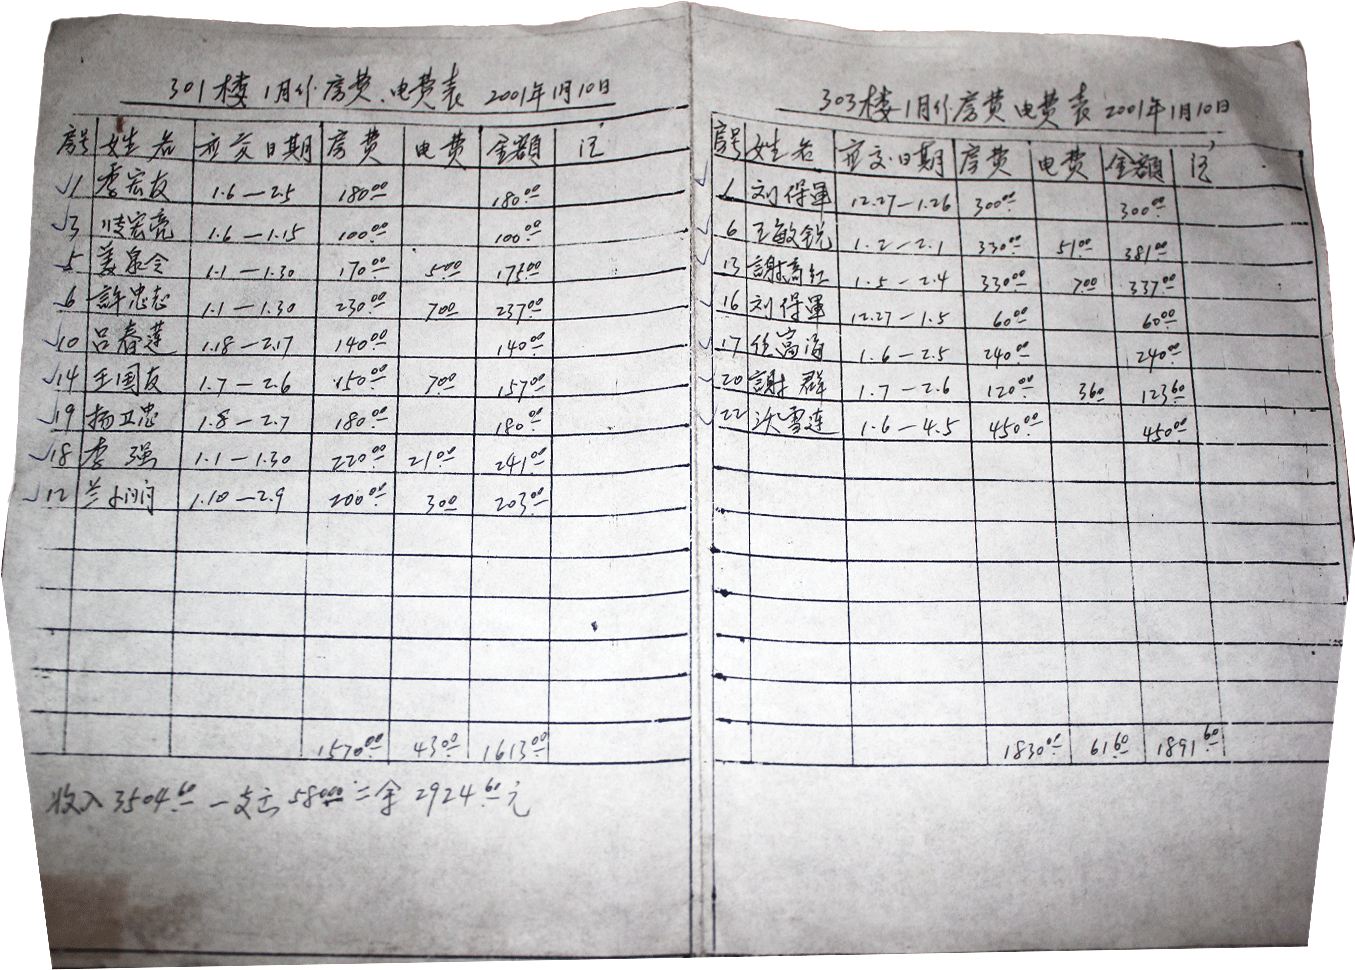 301楼1月份房费、电费表 2001年1月10日
房号 姓名 应交日期 房费 电费 金额 注
1 李宏友 1.6—2.5 180.00 180.00
3 宏亮 1.6—1.15 100.00 100.00
5 姜泉令 1.1—1.30 170.00 5.00 175.00
6 許忠志 1.1—1.30 230.00 7.00 237.00
10 吕春莲 1.18—2.17 140.00 140.00
14 王国友 1.7—2.6 150.00 7.00 157.00
19 杨卫忠 1.8—2.7 180.00 180.00
18 李强 1.1—1.30 220.00 21.00 241.00
12 兰小 1.10—2.9 200.00 3.00 203.00
1570.00 43.00 1613.00
收入3504.60—支出580.00=余2924.60元
303楼1月份房费电费表 2001年1月10日
房号 姓名 应交日期 房费 电费 金额 注
1 刘保軍 12.27—1.26 300.00 300.00
6 王敏锐 1.2—2.1 330.00 51.00 381.00
13 謝高红 1.5—2.4 330.00 7.00 337.00
16 刘保軍 12.27—1.5 60.00 60.00
17 富海 1.6—2.5 240.00 240.00
20 謝群 1.7—2.6 120.00 3.60 123.60
22 洪雪莲 1.6—4.5 450.00 450.00
1830.00 61.60 1891.60